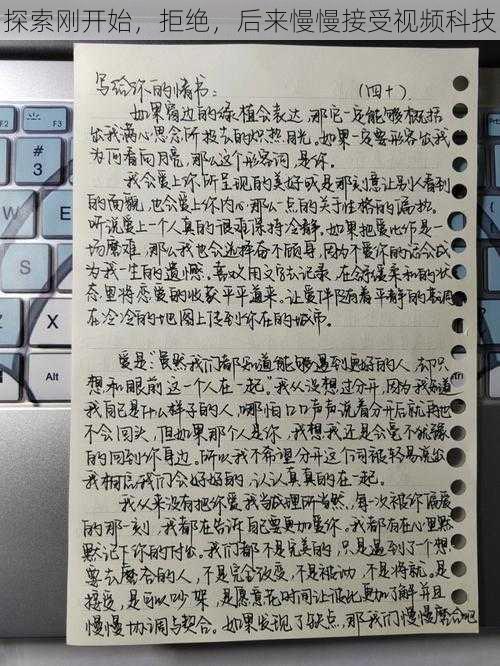 探索刚开始，拒绝，后来慢慢接受视频科技
写给你的情书：（四十）
如果窗边的绿植会表达，那它一定能够概括
出我满心思念所投去的炽热目光。如果一定要形容出我
为何看向月亮，那么这个形容词，是你。
我会爱上你所呈现的美好或是那刻意让别人看到
的面貌，也会爱上你内心那么一点的关于性格的偏执。
听说爱上一个人真的很难保持冷静，如果把爱比作是一
场磨难，那么我也会选择奋不顾身，因为不爱你的话会成
为我一生的遗憾。喜欢用文字去记录，在舒缓柔和的状
态里将恋爱的收获平平道来。让爱伴随着平静的基调
在冷冷的地图上传到你在的城市。
爱是“虽然我们都知道能够遇到更好的人，却只
想和眼前这一个人在一起。”我从没想过分开，因为我知道
我自己是什么样子的人，哪怕口口声声说着分开后就再也
不会回头，但如果那个人是你，我想我还是会毫不犹豫
的回到你身边。所以我不希望分开这个词被轻易说出
我相信我们会好好的，认认真真的在一起。
我从来没有把你爱我当成理所当然，每一次被你偏爱
的那一刻，我都在告诉自己要更加爱你。我都有在心里默
默记下你的付出。我们都不是完美的，只是遇到了个想
要去磨合的人，不是完全改变，不是被动，不是将就。是
接受，是可以吵架，是愿意花时间让彼此更加了解并且
慢慢协调与契合。如果发现了缺点，那我们慢慢磨合吧